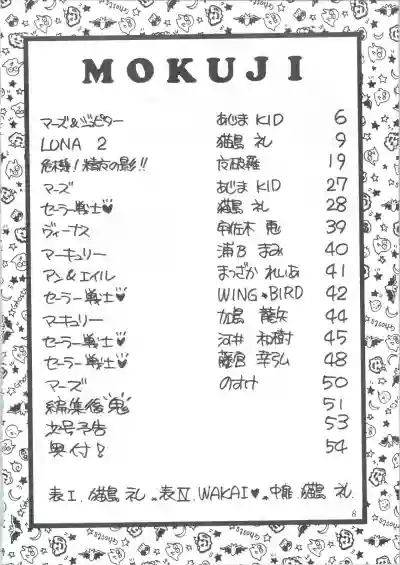 MOKUJI
マーズ&ジュピター あじま KID 6
LUNA 2 猫島 礼 9
危機!精夜の影!! 夜破羅 19
マーズ あじま KID 27
セーラー戦士♥ 猫島 礼 28
ヴィーナス 宇佐木 恵 39
マーキュリー 浦B まみ 40
アン&エイル まつざか れいあ 41
セーラー戦士♥ WING★BIRD 42
マーキュリー 加島 龍矢 44
セーラー戦士♥ 河井 和樹 45
セーラー戦士♥ 藤宮 幸弘 48
マーズ のすけ 50
編集後鬼 51
次号予告 53
奥付! 54
表I.猫島 礼.表IV.WAKAI♥.中扉 猫島 礼.
8